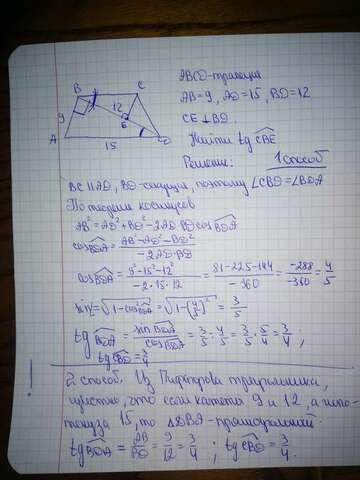 B C
9 12 E
A 15 D
ABCD-трапеция
AB=9, AD=15, BD=12
CE⊥BD
Найти tg CBE
Решение: 1 способ
BC∥AD, BD-секущая, поэтому ∠CBD=∠BDA
По теореме косинусов
AB²=AD²+BD²-2AD·BD cos BDA
cos BDA = (AB²-AD²-BD²)/(-2AD·BD)
cos BDA = (9²-15²-12²)/(-2·15·12) = (81-225-144)/(-360) = (-288)/(-360) = 4/5
sin = √(1-cos² BDA) = √(1-(4/5)²) = 3/5
tg BDA = sin BDA/cos BDA = 3/5 : 4/5 = 3/5 · 5/4 = 3/4 ;
tg CBD = 3/4
2 способ. Из Пифагорова треугольника,
известно, что если катеты 9 и 12, а гипо-
тенуза 15, то ΔDBA-прямоугольный.
tg BDA = AB/BD = 9/12 = 3/4 ; tg CBD = 3/4.